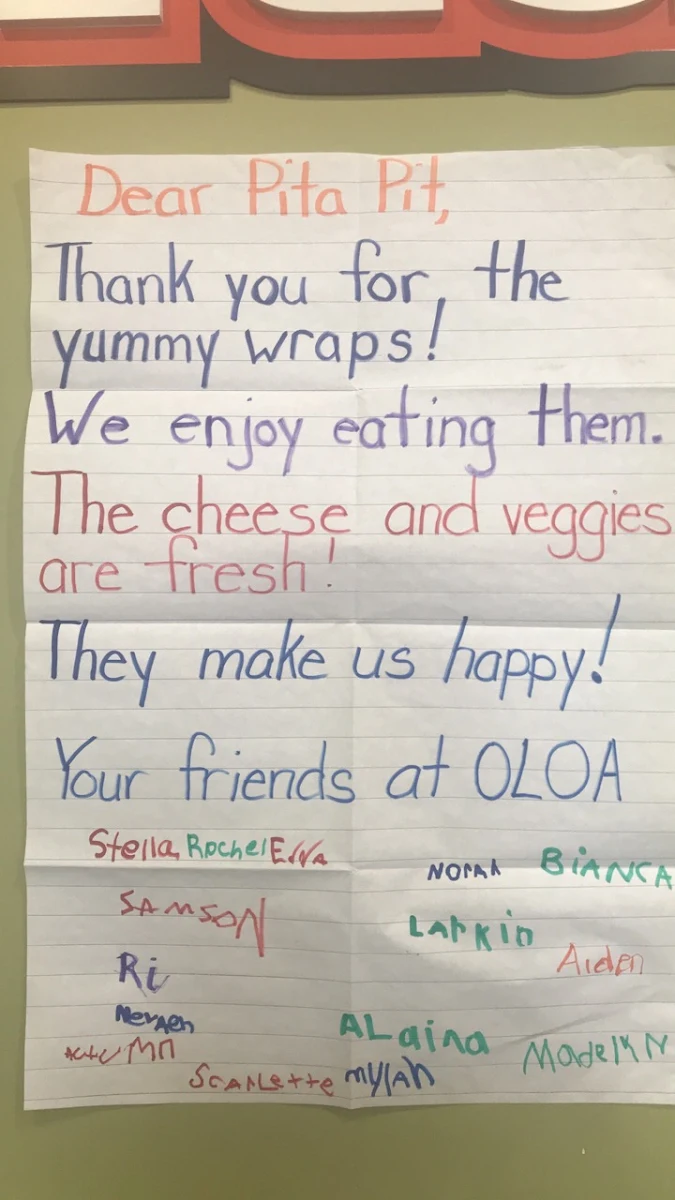 Dear Pita Pit,
Thank you for, the
yummy wraps!
We enjoy eating them.
The cheese and veggies
are fresh!
They make us happy!
Your friends at OLOA
Stella Rachel Ella
NORAH BiANCA
SAMSON
LArKin
Aiden
Ri
Nevaeh
ALaina
AutuMn
MadelyN
ScARLette mylAh